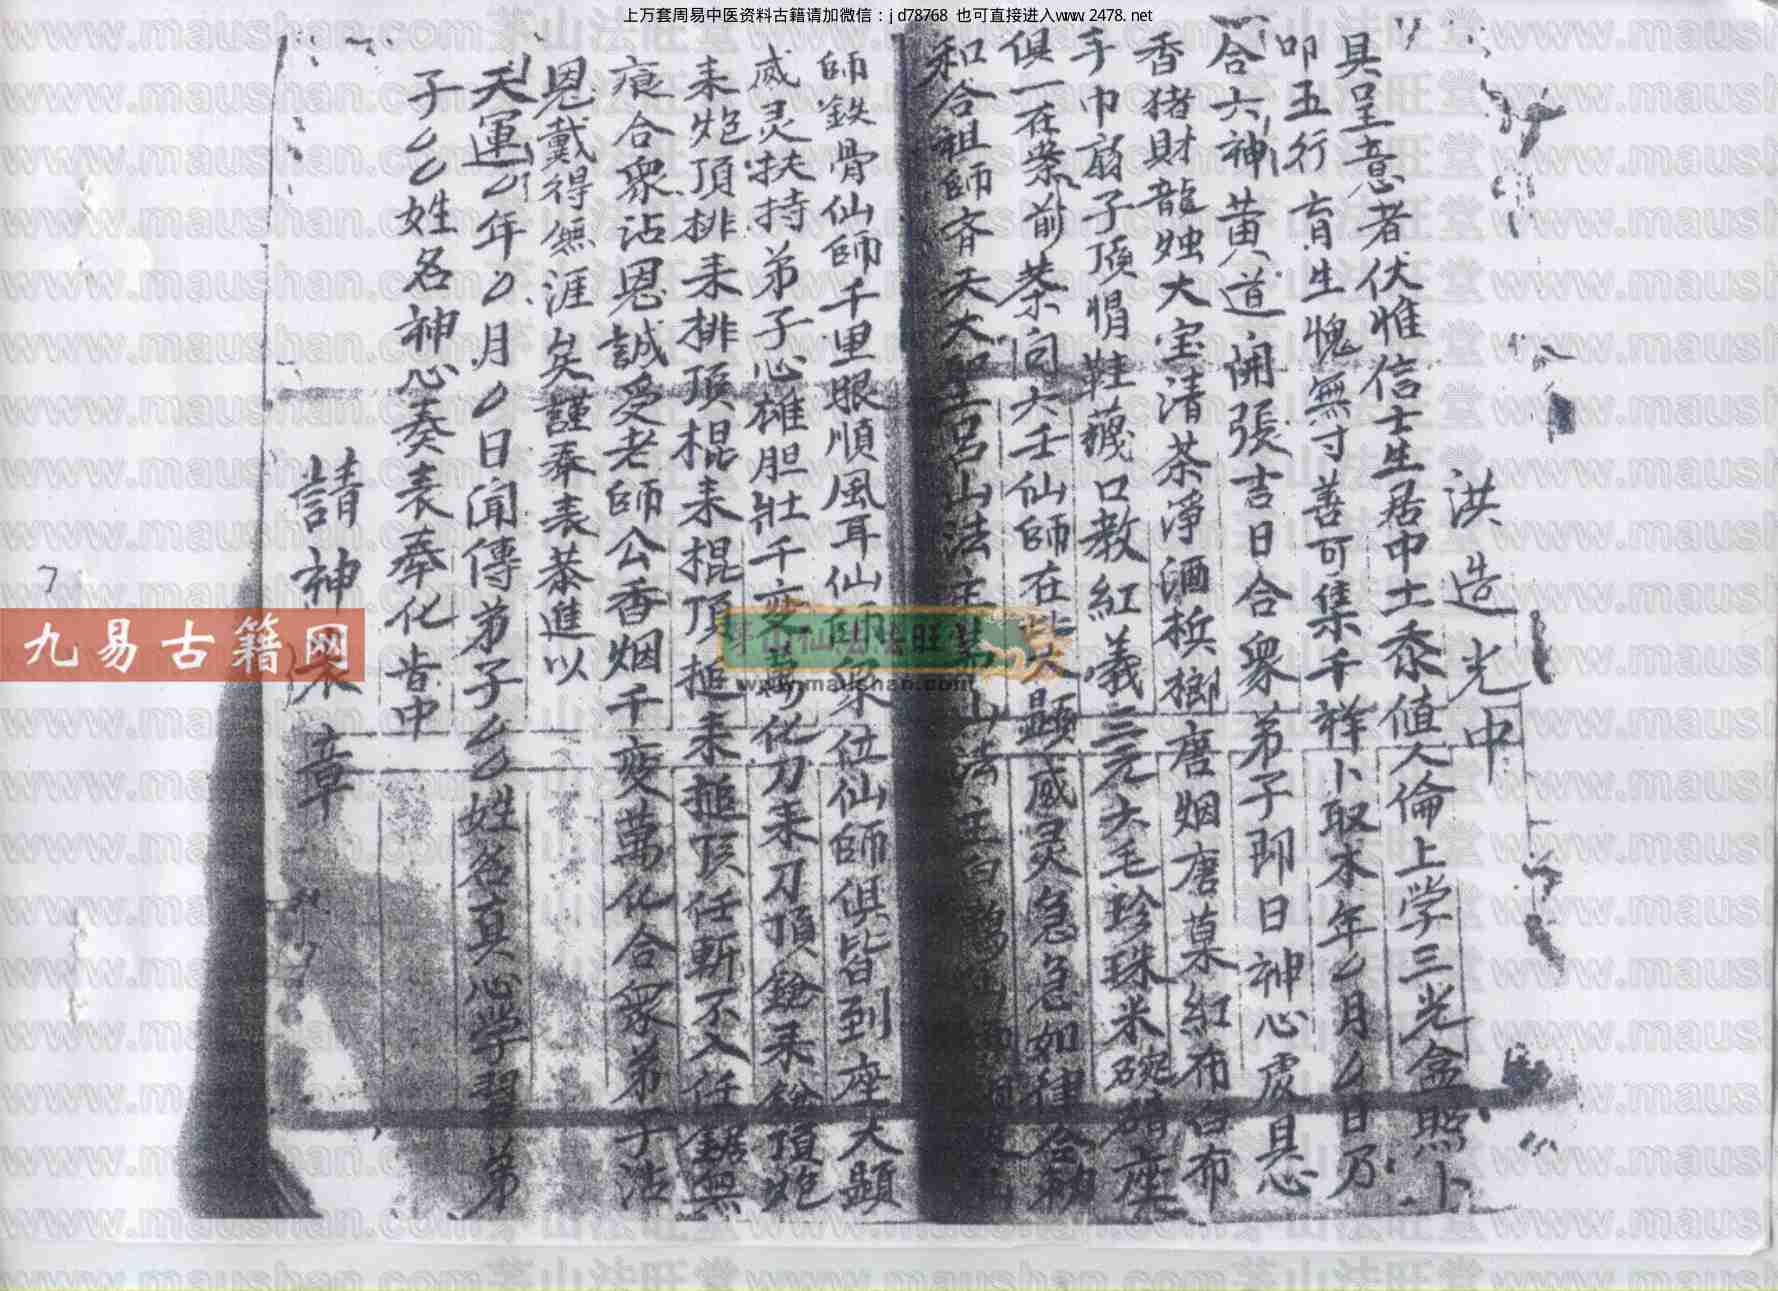 上万套周易中医资料古籍请加微信：jd78768 也可直接进入www.2478.net
洪造光中
具呈意者伏惟信士生居中土黍值人倫上学三光盒照卜
叩五行育生愧無寸善可集千祥卜取本年厶月厶日乃
合六神黄道開張吉日合衆弟子即日神心虔具
香猪財龍烛大宝清茶淨酒梹榔唐烟唐菓紅布白布
手巾扇子頂帽鞋襪口教紅義三元大毛珍珠米碗 座
俱一在案前恭向六壬仙師在 大顯威灵急急如律令
和合祖師齐天大聖吕山法主 法主白鶴
師鉄骨仙師千里眼順風耳仙師众位仙師俱皆到座大顯
威灵扶持弟子心雄胆壯千变萬化刀耒刀頂鎗耒鎗頂炮
耒炮頂排耒排頂棍耒棍頂搥耒搥頂任斬不入任鋸無
痕合衆沾恩誠受老師公香烟千变萬化合衆弟子沾
恩戴得無涯矣謹奉表恭進以
天運厶年厶月厶日闻傳弟子厶厶姓名真心学習弟
子厶厶姓名神心奏表奉化 中
請神 章
7
九易古籍网
茅山仙 法旺堂
www.maushan.com